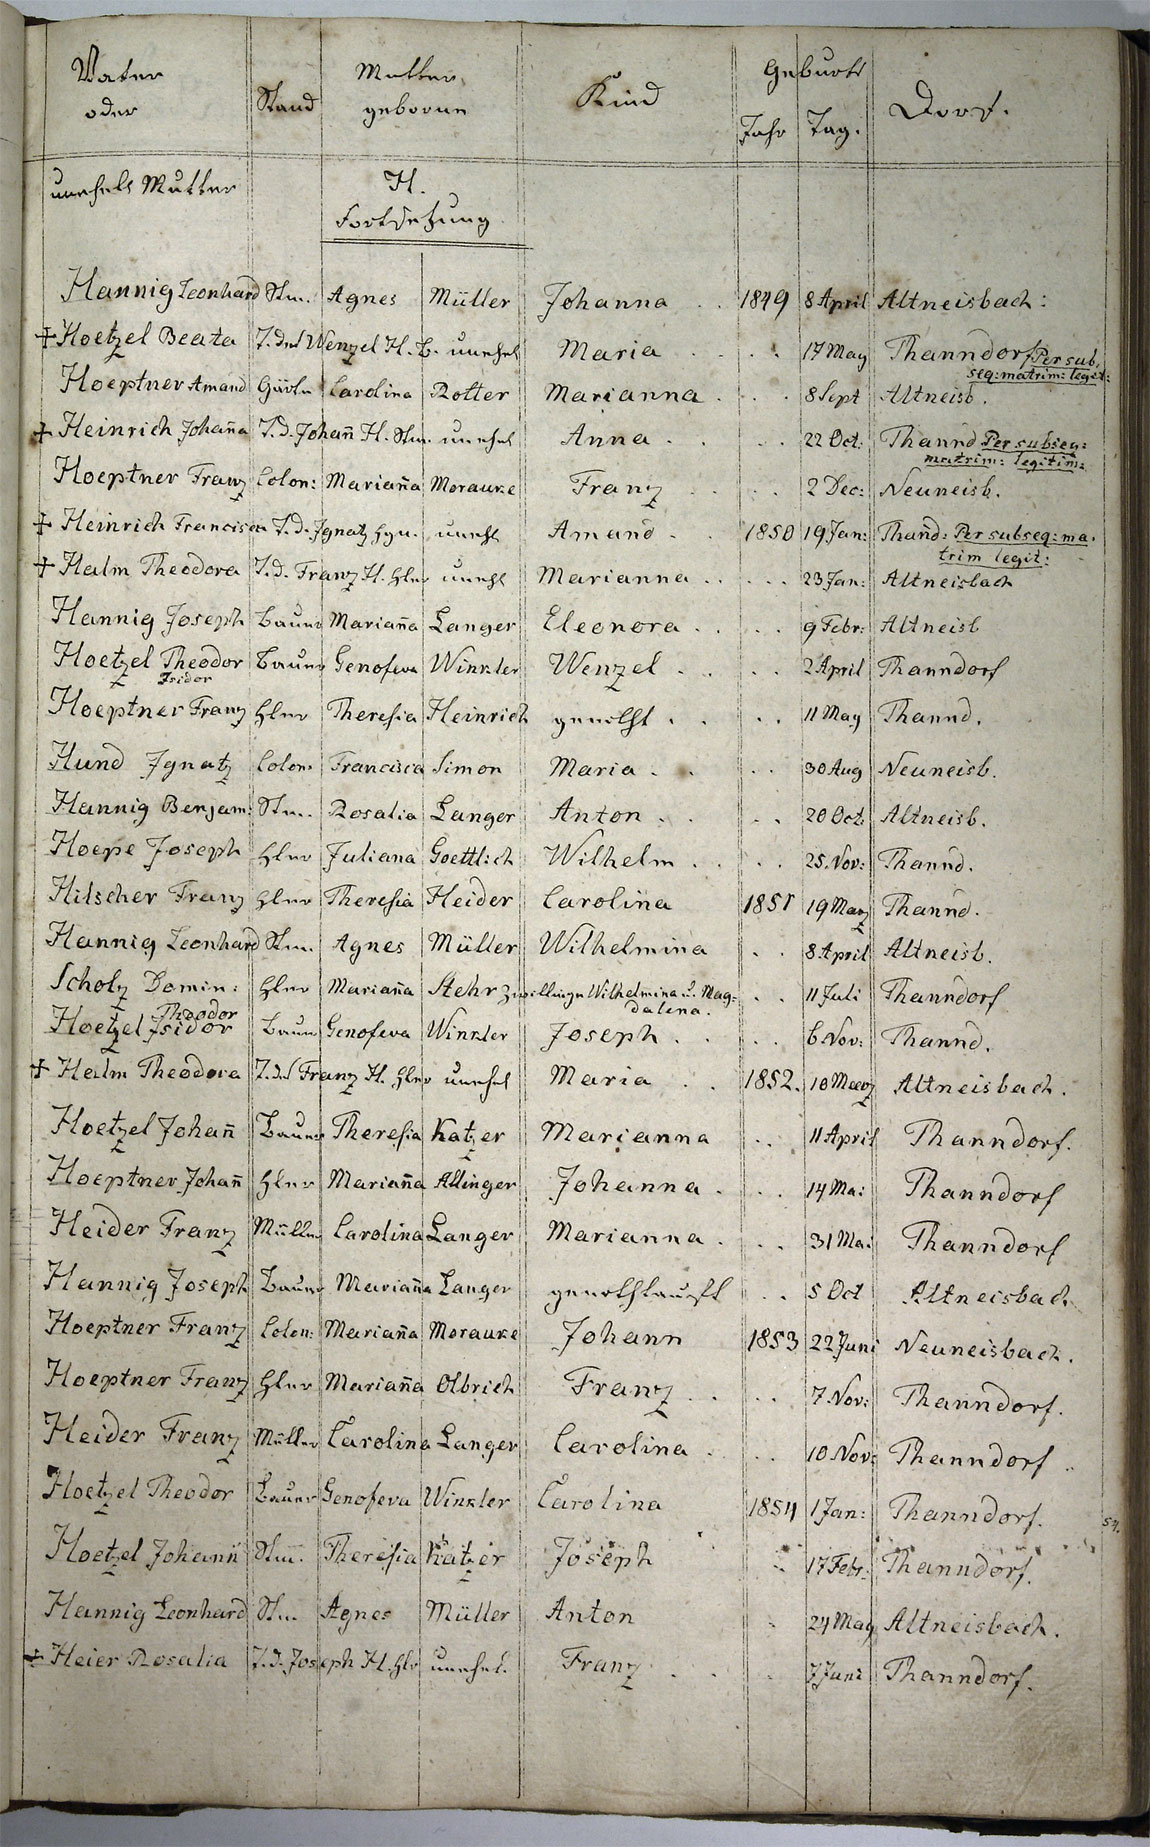 Vater oder Stand Mutter geborne Kind Geburts Jahr Tag. Dorf.
unehel: Mutter
H.
Fortsetzung
Hannig Leonhard Stm. Agnes Müller Johanna . . 1849 8 April Altneisbach:
+ Hoetzel Beata T. des Wenzel H. B. unehel Maria . . . . 17 May Thanndorf Per sub,
seq: matrim: legit:
Hoeptner Amand Gärtn Carolina Rotter Marianna . . . 8 Sept Altneisb.
+ Heinrich Johan̄a T. d. Johan̄ H. Stm. unehel Anna . . . . 22 Oct: Thannd Per subseq:
matrim: legitim:
Hoeptner Franz Colon: Marian̄a Morauke Franz . . . . 2 Dec: Neuneisb.
+ Heinrich Francisca T. d. Ignatz unehl Amand . . 1850 19 Jan: Than̄d: Per subseq: ma.
trim legit:
+ Halm Theodora T. d. Franz H. Hler unehl Marianna . . . . 23 Jan: Altneisbach
Hannig Joseph Bauer Marian̄a Langer Eleonora . . . 9 Febr: Altneisb
Hoetzel Theodor Bauer Genofeva Winkler Wenzel . . . . 2 April Thanndorf
Isidor
Hoeptner Franz Hler Theresia Heinrich genotht . . . 11 May Thannd.
Hund Ignatz Colon: Francisca Simon Maria . . . . 30 Aug Neuneisb.
Hannig Benjam: Stm. Rosalia Langer Anton . . . . 20 Oct: Altneisb.
Hoepe Joseph Hler Juliana Goettlich Wilhelm . . . . 25. Nov: Thannd.
Hilscher Franz Hler Theresia Heider Carolina 1851 19 Marz Thannd.
Hannig Leonhard Stm. Agnes Müller Wilhelmina . . 8 April Altneisb.
Scholz Domin: Hler Marian̄a Stehr Zwillinge Wilhelmina u. Mag= . . 11 Juli Thanndorf
dalena.
Theodor
Hoetzel Isidor Bauer Genofeva Winkler Joseph . . . . 6 Nov: Thannd.
+ Halm Theodora T. des Franz H. Hler unehel Maria . . 1852. 10 Maerz Altneisbach.
Hoetzel Johan̄ Bauer Theresia Katzer Marianna . . 11 April Thanndorf.
Hoeptner Johan̄ Hler Marian̄a Allinger Johanna . . . 14 Mai Thanndorf
Heider Franz Müller Carolina Langer Marianna . . . 31 Mai Thanndorf
Hannig Joseph Bauer Marian̄a Langer genothtauft . . 5 Oct Altneisbach
Hoeptner Franz Colon: Marian̄a Morauke Johann 1853 22 Juni Neuneisbach.
Hoeptner Franz Hler Marian̄a Olbrich Franz . . . 7. Nov: Thanndorf.
Heider Franz Müller Carolina Langer Carolina . . . 10 Nov: Thanndorf
Hoetzel Theodor Bauer Genofeva Winkler Carolina 1854 1 Jan: Thanndorf.
Hoetzel Johan̄ Stm. Theresia Katzer Joseph . . 17 Febr. Thanndorf.
Hannig Leonhard Stm Agnes Müller Anton . 24 May Altneisbach.
+ Heier Rosalia T. d. Joseph H. Hlr unehel. Franz . . . 7 Juni Thanndorf.